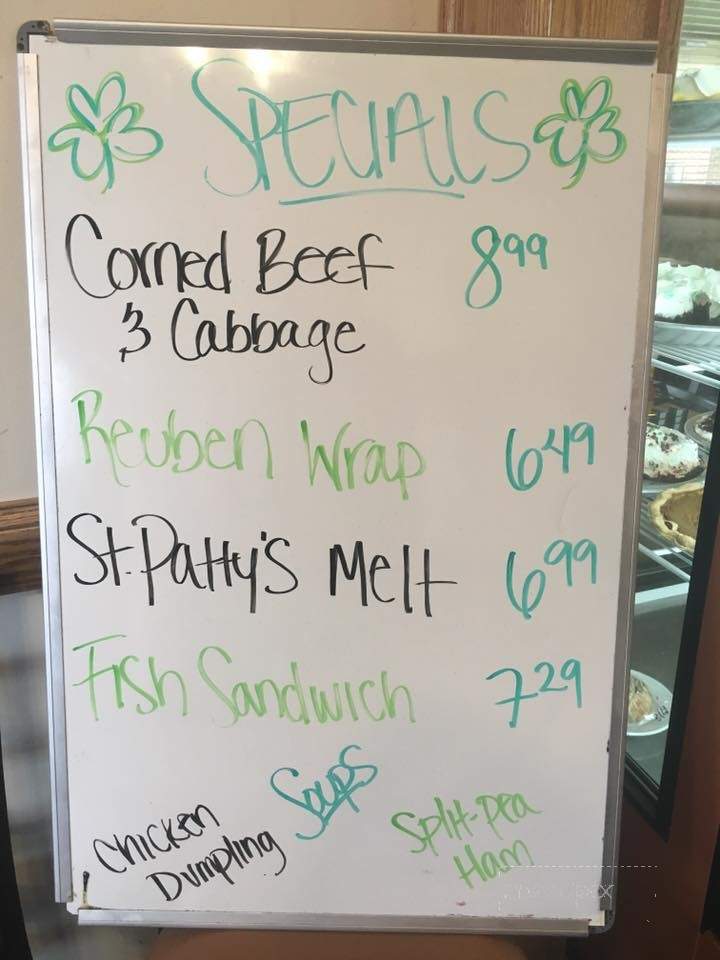 SPECIALS
Corned Beef 8.99
& Cabbage
Reuben Wrap 6.49
St. Patty's Melt 6.99
Fish Sandwich 7.29
Soups
Chicken
Dumpling
Split-pea
Ham